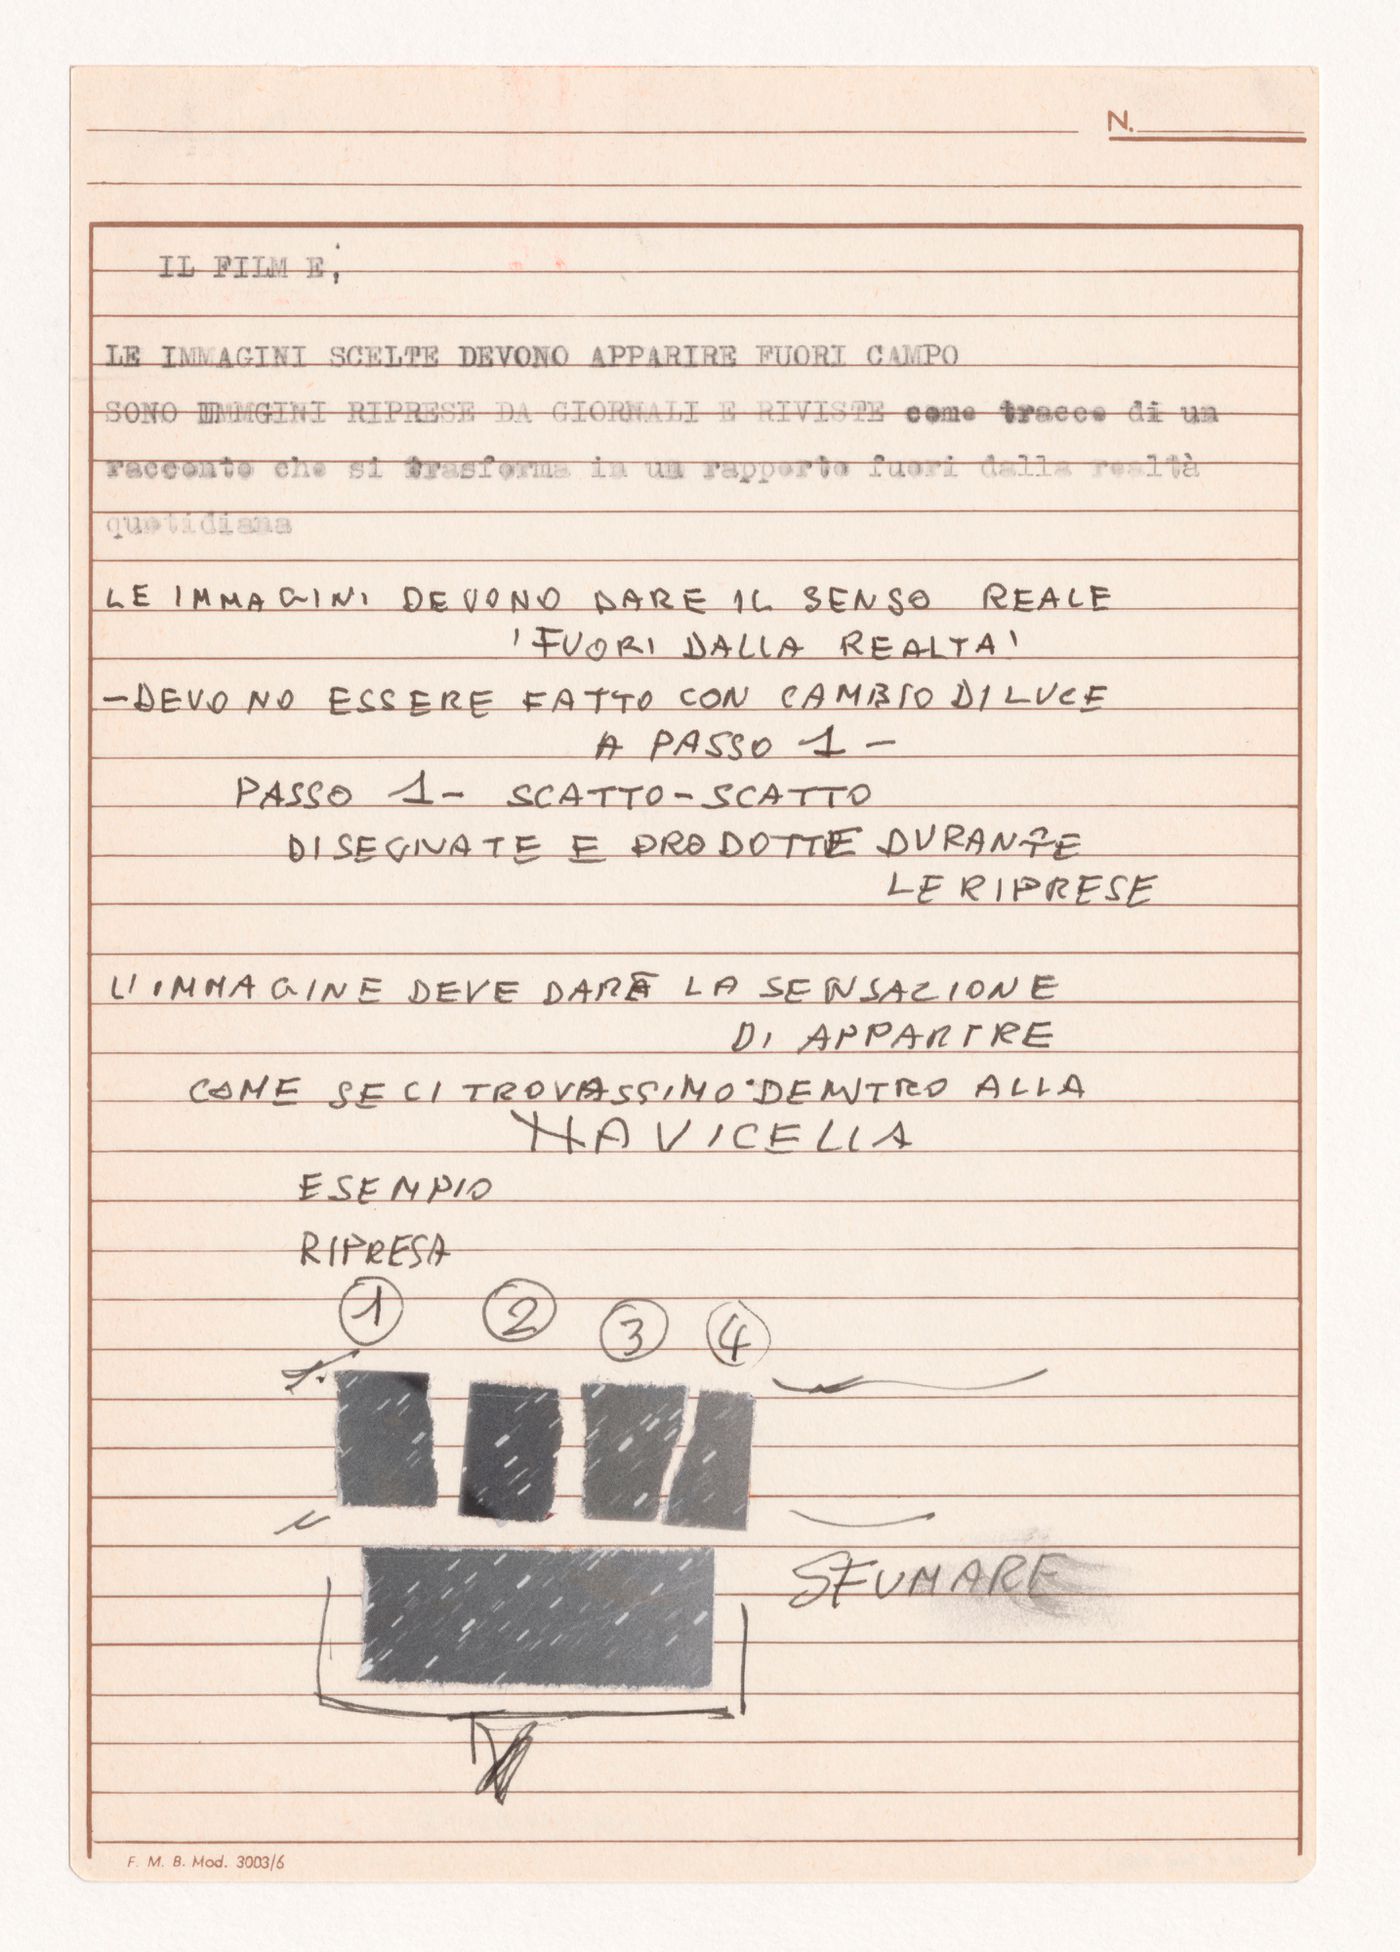 N.
IL FILM E;
LE IMMAGINI SCELTE DEVONO APPARIRE FUORI CAMPO
SONO IMMGINI RIPRESE DA GIORNALI E RIVISTE come tracce di un
racconto che si trasforma in un rapporto fuori dalla realtà
quotidiana
LE IMMAGINI DEVONO DARE IL SENSO REALE
'FUORI DALLA REALTA'
-DEVONO ESSERE FATTO CON CAMBIO DI LUCE
A PASSO 1-
PASSO 1- SCATTO-SCATTO
DISEGNATE E PRODOTTE DURANTE
LE RIPRESE
L'IMMAGINE DEVE DARE LA SENSAZIONE
DI APPARIRE
COME SE CI TROVASSIMO DENTRO ALLA
NAVICELLA
ESEMPIO
RIPRESA
1 2 3 4
SFUMARE
F. M. B. Mod. 3003/6